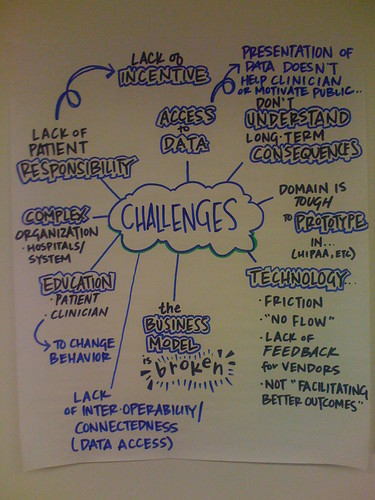 LACK of
INCENTIVE
PRESENTATION OF
DATA DOESN'T
HELP CLINICIAN
OR MOTIVATE PUBLIC...
ACCESS
to
DATA
DON'T
UNDERSTAND
LONG-TERM
CONSEQUENCES
LACK OF
PATIENT
RESPONSIBILITY
CHALLENGES
DOMAIN IS
TOUGH
to PROTOTYPE
IN...
(HIPAA, ETC)
COMPLEX
ORGANIZATION
• HOSPITALS/
SYSTEM
EDUCATION
• PATIENT
• CLINICIAN
TO CHANGE
BEHAVIOR
the
BUSINESS
MODEL
is broken
TECHNOLOGY...
• FRICTION
• "NO FLOW"
• LACK OF
FEEDBACK
for VENDORS
• NOT "FACILITATING
BETTER OUTCOMES"
LACK
OF INTER-OPERABILITY/
CONNECTEDNESS
(DATA ACCESS)